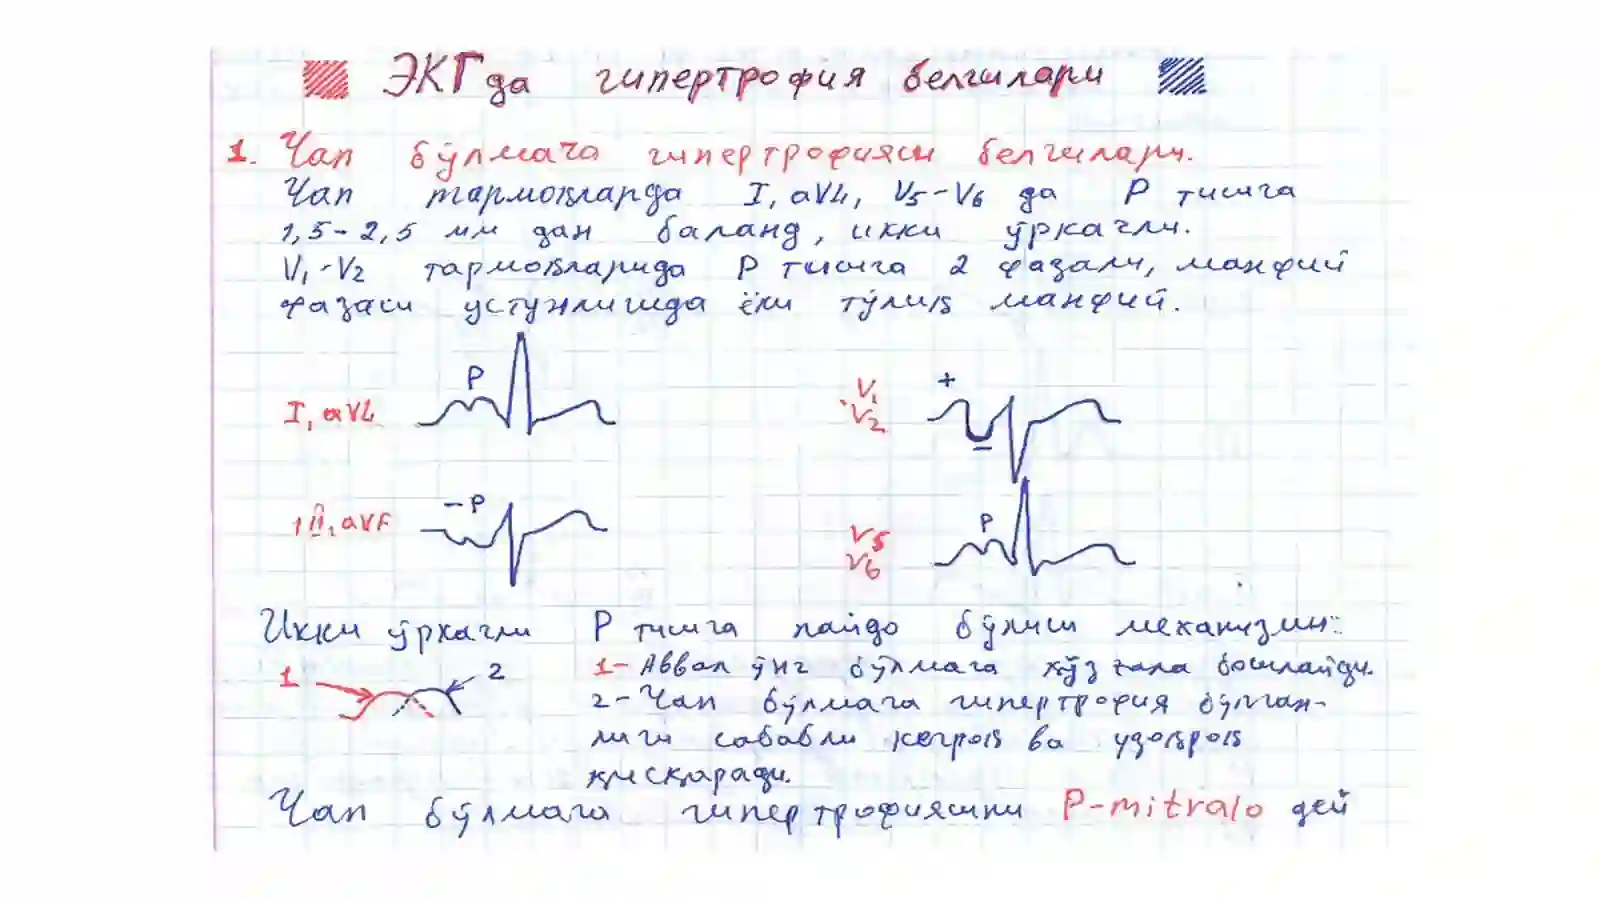 ЭКГда гипертрофия белгилари
1. Чап бўлмача гипертрофияси белгилари.
Чап тармоқларда I, aVL, V5-V6 да P тишча
1,5-2,5 мм дан баланд, икки ўркачли.
V1-V2 тармоқларида P тишча 2 фазали, манфий
фазаси устунлигида ёки тўлиқ манфий.
I, aVL
P
V1
V2
+
−
III, aVF
−P
V5
V6
P
Икки ўркачли P тишча пайдо бўлиш механизми:
1
2
1- Аввал ўнг бўлмача қўзғала бошлайди.
2- Чап бўлмача гипертрофия бўлган-
лиги сабабли кечроқ ва узоқроқ
қисқаради.
Чап бўлмача гипертрофиясини P-mitralo дей